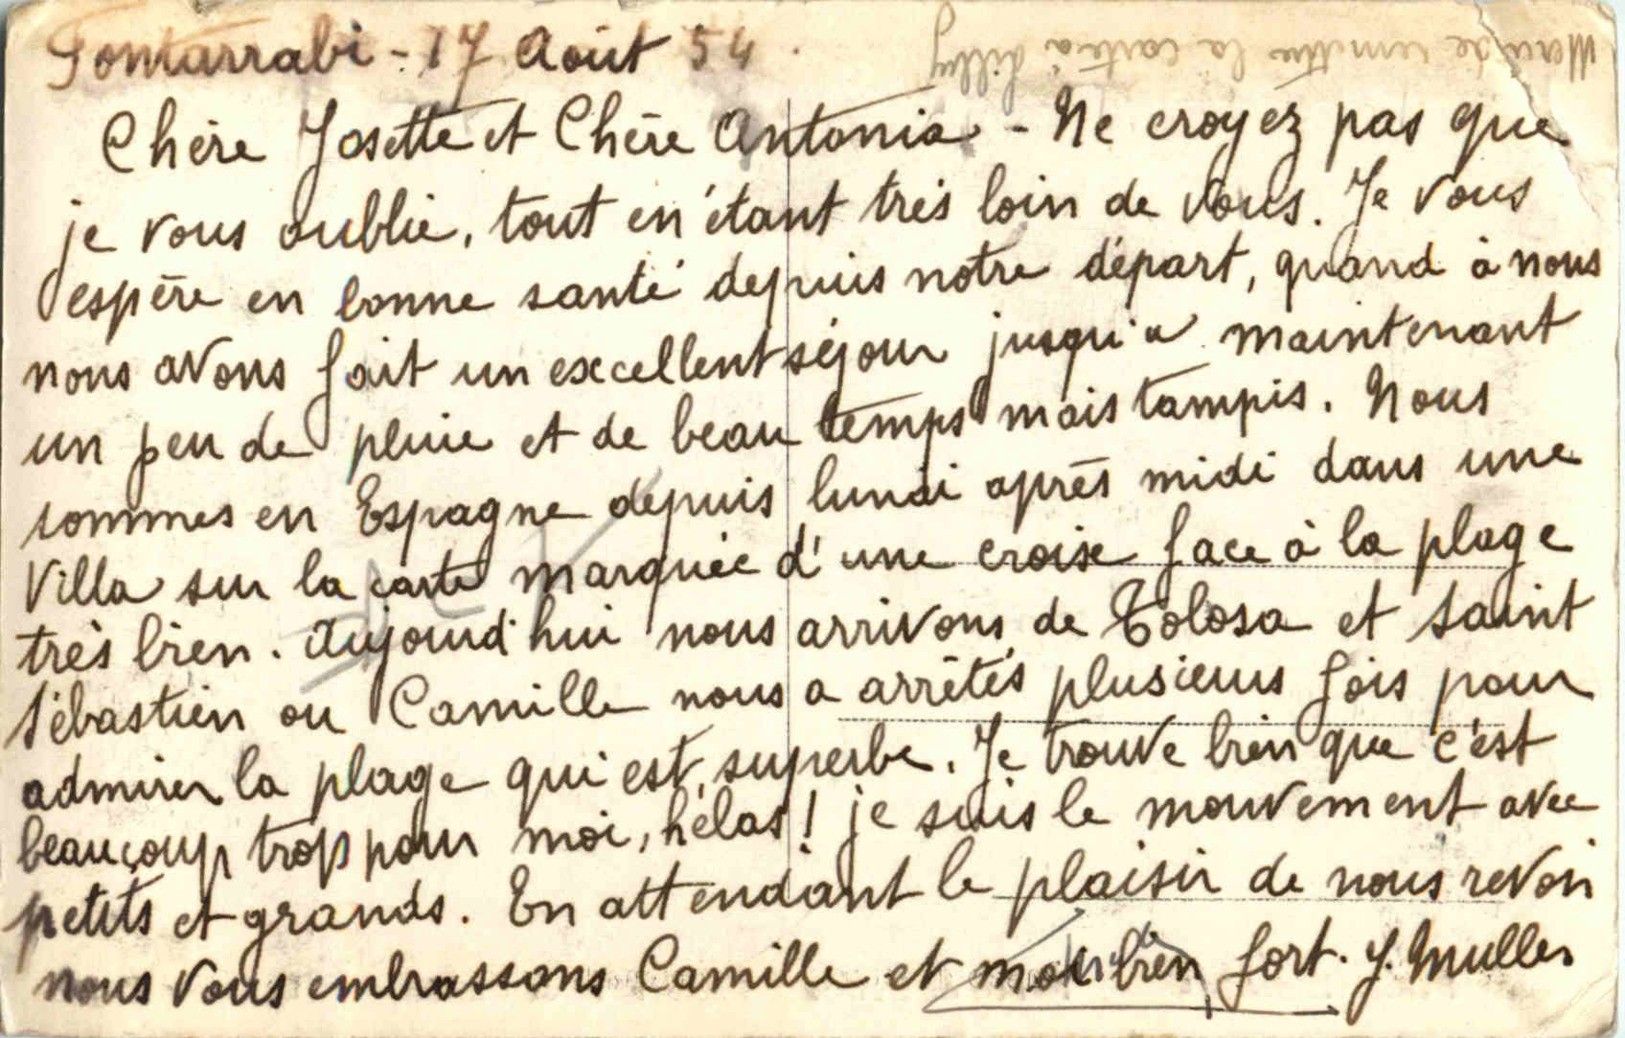 Fontarrabi - 17 Août 54.
Merci de remettre la carte à Lilly
Chère Josette et Chère Antonia - Ne croyez pas que
je vous oublie, tout en étant très loin de vous. Je vous
espère en bonne santé depuis notre départ, quand à nous
nous avons fait un excellent séjour jusqu'a maintenant
un peu de pluie et de beau temps mais tampis. Nous
sommes en Espagne depuis lundi après midi dans une
Villa sur la carte marquée d'une croix face à la plage
très bien. Aujourd'hui nous arrivons de Tolosa et Saint
Sébastien ou Camille nous a arrêtés plusieurs fois pour
admirer la plage qui est superbe. Je trouve bien que c'est
beaucoup trop pour moi, hélas! je suis le mouvement avec
petits et grands. En attendant le plaisir de nous revoir
nous vous embrassons Camille et moi bien fort. J. Muller